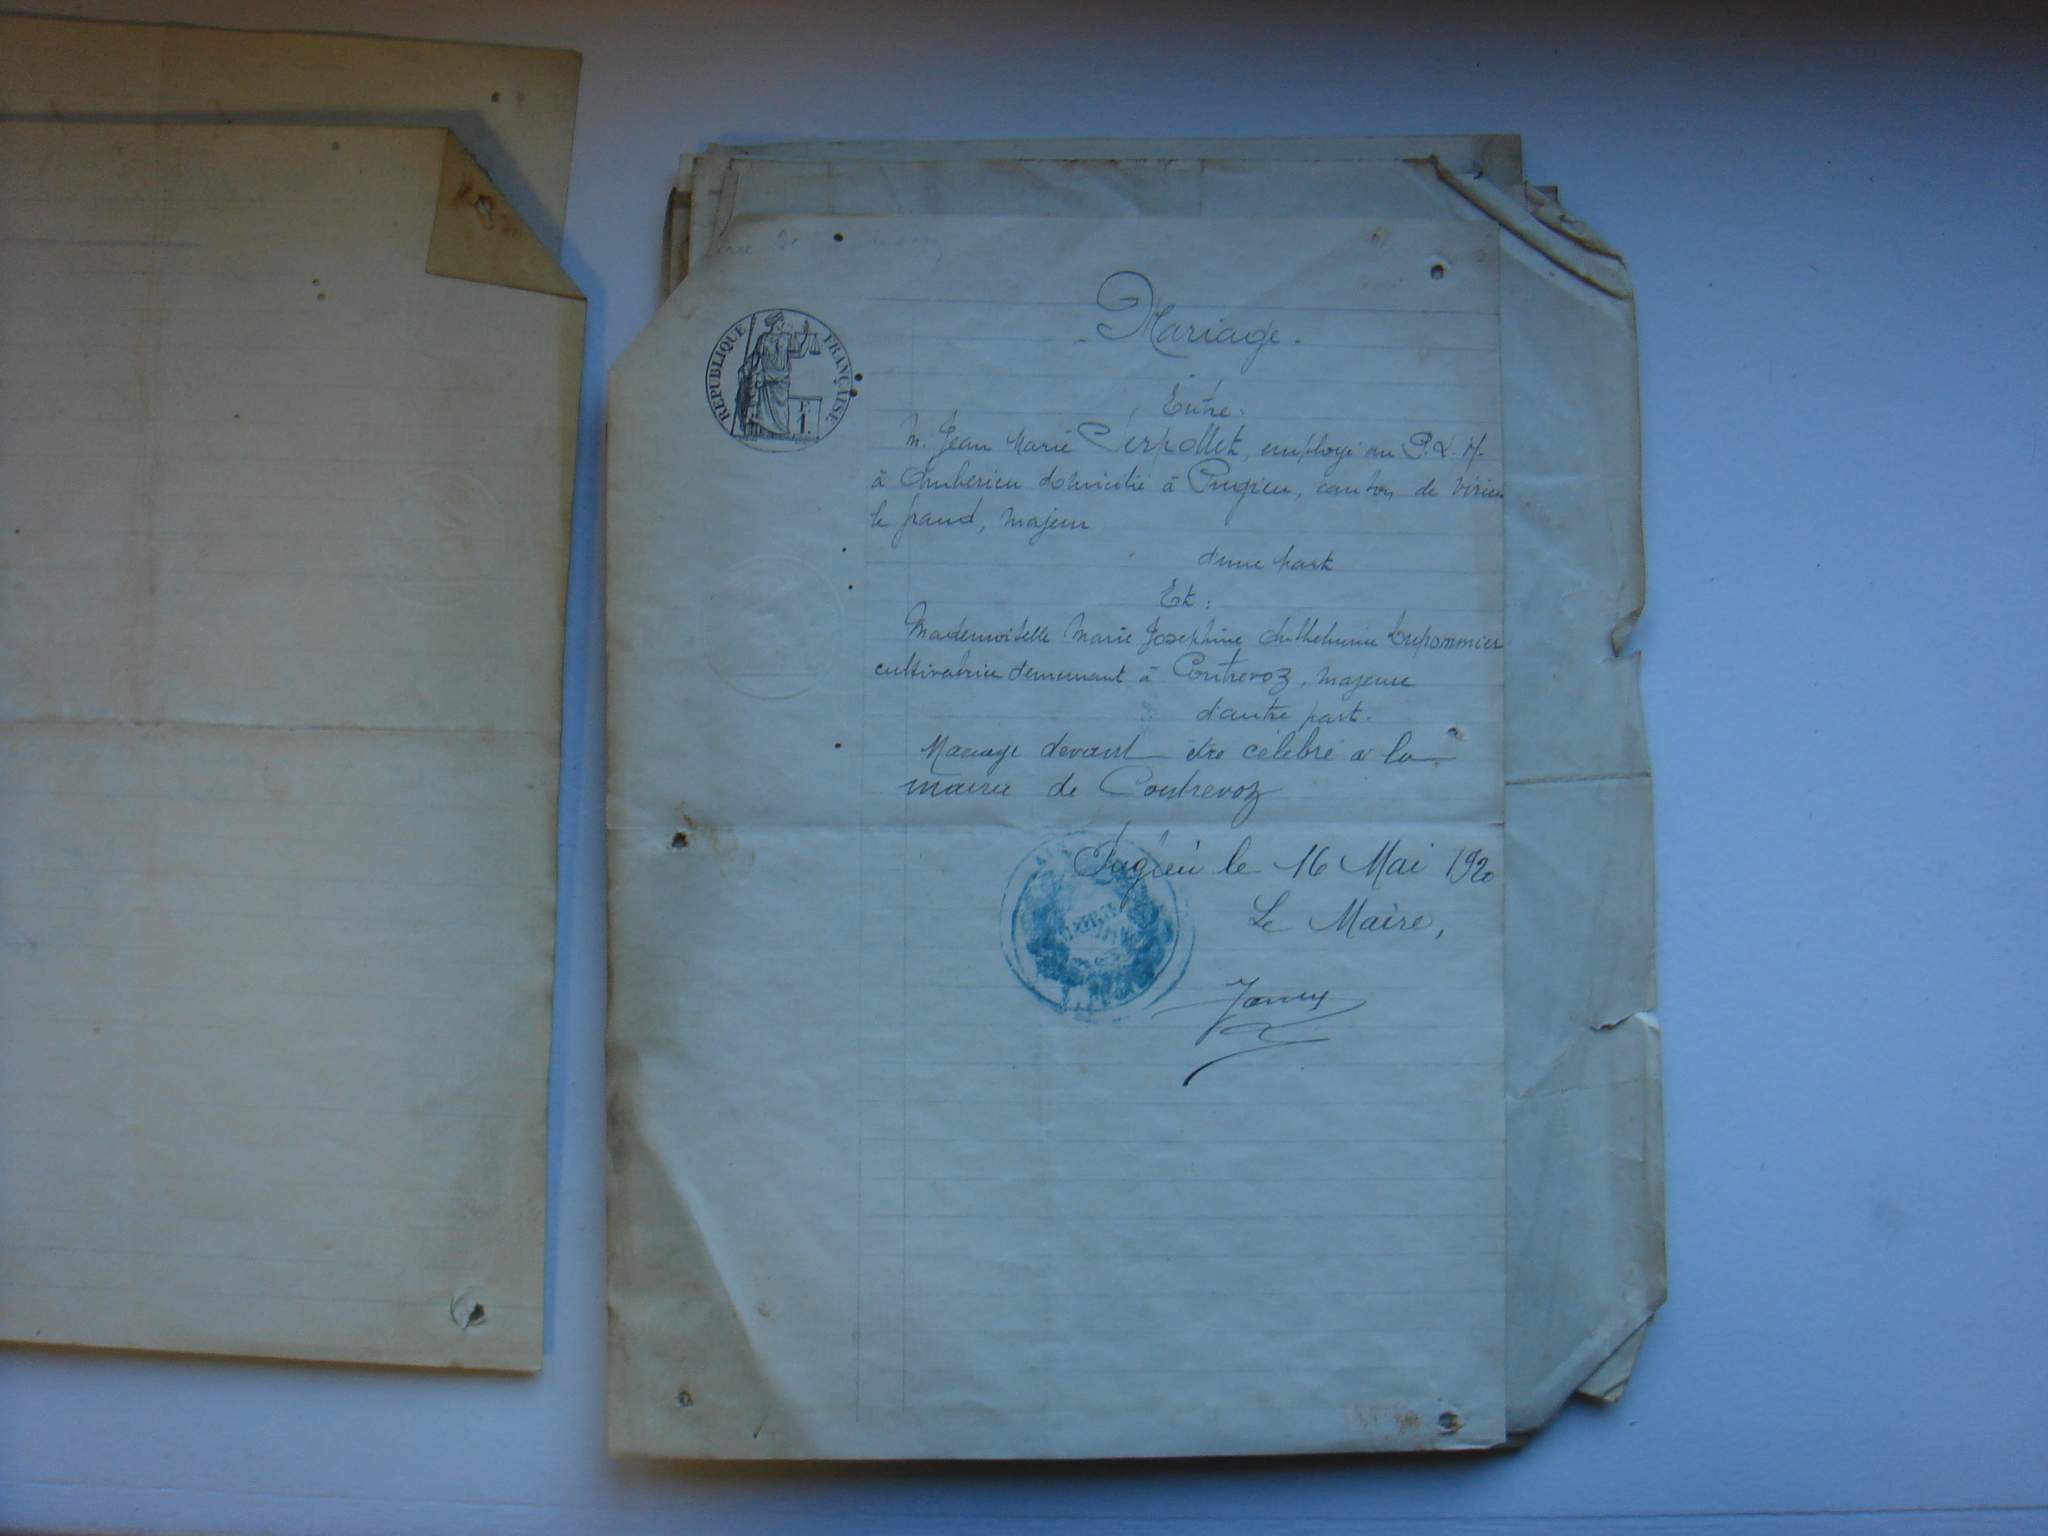 RÉPUBLIQUE FRANÇAISE
F.
1.
Mariage.
Entre:
M. Jean Marie Serpollet, employé au P.L.M.
à Ambérieu domicilié à Pugieu, canton de Virieu
le grand, majeur
d'une part
Et:
Mademoiselle Marie Josephine Anthelmine Trepommier
cultivatrice demeurant à Contrevoz, majeure
d'autre part.
Mariage devant être célébré à la
mairie de Contrevoz
Pugieu le 16 Mai 1920
Le Maire,